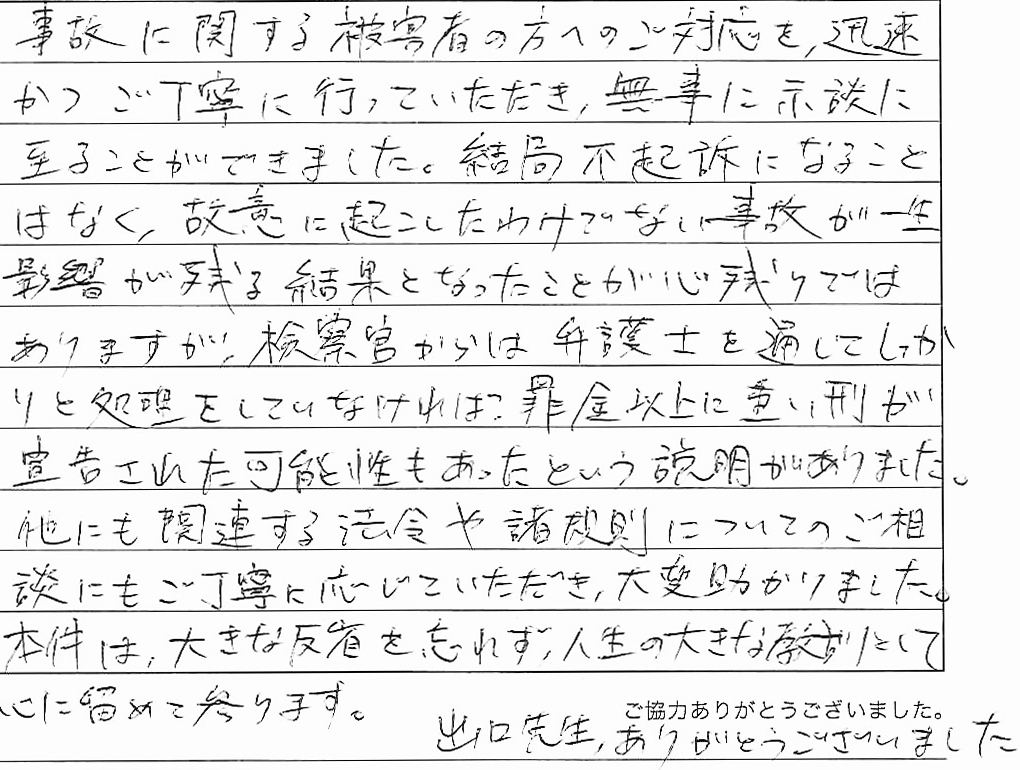 事故に関する被害者の方へのご対応を、迅速
かつご丁寧に行っていただき、無事に示談に
至ることができました。結局不起訴になること
はなく、故意に起こしたわけでない事故が一生
影響が残る結果となったことが心残りでは
ありますが、検察官からは弁護士を通じてしっか
りと処理をしていなければ罰金以上に重い刑が
宣告された可能性もあったという説明がありました。
他にも関連する法令や諸規則についてのご相
談にもご丁寧に応じていただき、大変助かりました。
本件は、大きな反省を忘れず、人生の大きな教訓として
心に留めて参ります。
ご協力ありがとうございました。
出口先生、ありがとうございました